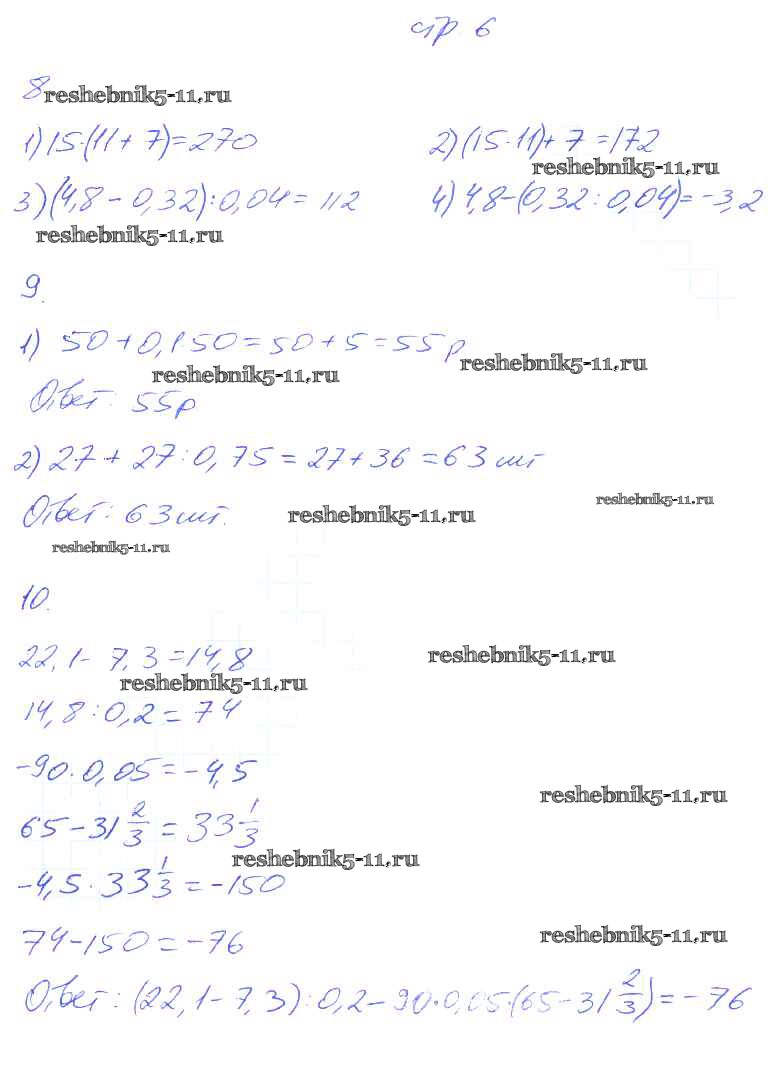 стр 6
8 reshebnik5-11.ru
1) 15·(11+7)=270 2) (15·11)+7=172
reshebnik5-11.ru
3) (4,8-0,32):0,04=112 4) 4,8-(0,32:0,04)=-3,2
reshebnik5-11.ru
9.
1) 50+0,1 50=50+5=55р
reshebnik5-11.ru reshebnik5-11.ru
Ответ: 55р
2) 27+27:0,75=27+36=63 шт
reshebnik5-11.ru
Ответ: 63 шт. reshebnik5-11.ru
reshebnik5-11.ru
10.
22,1-7,3=14,8 reshebnik5-11.ru
reshebnik5-11.ru
14,8:0,2=74
-90·0,05=-4,5
reshebnik5-11.ru
65-31 2/3=33 1/3
reshebnik5-11.ru
-4,5·33 1/3=-150
74-150=-76 reshebnik5-11.ru
Ответ: (22,1-7,3):0,2-90·0,05·(65-31 2/3)=-76